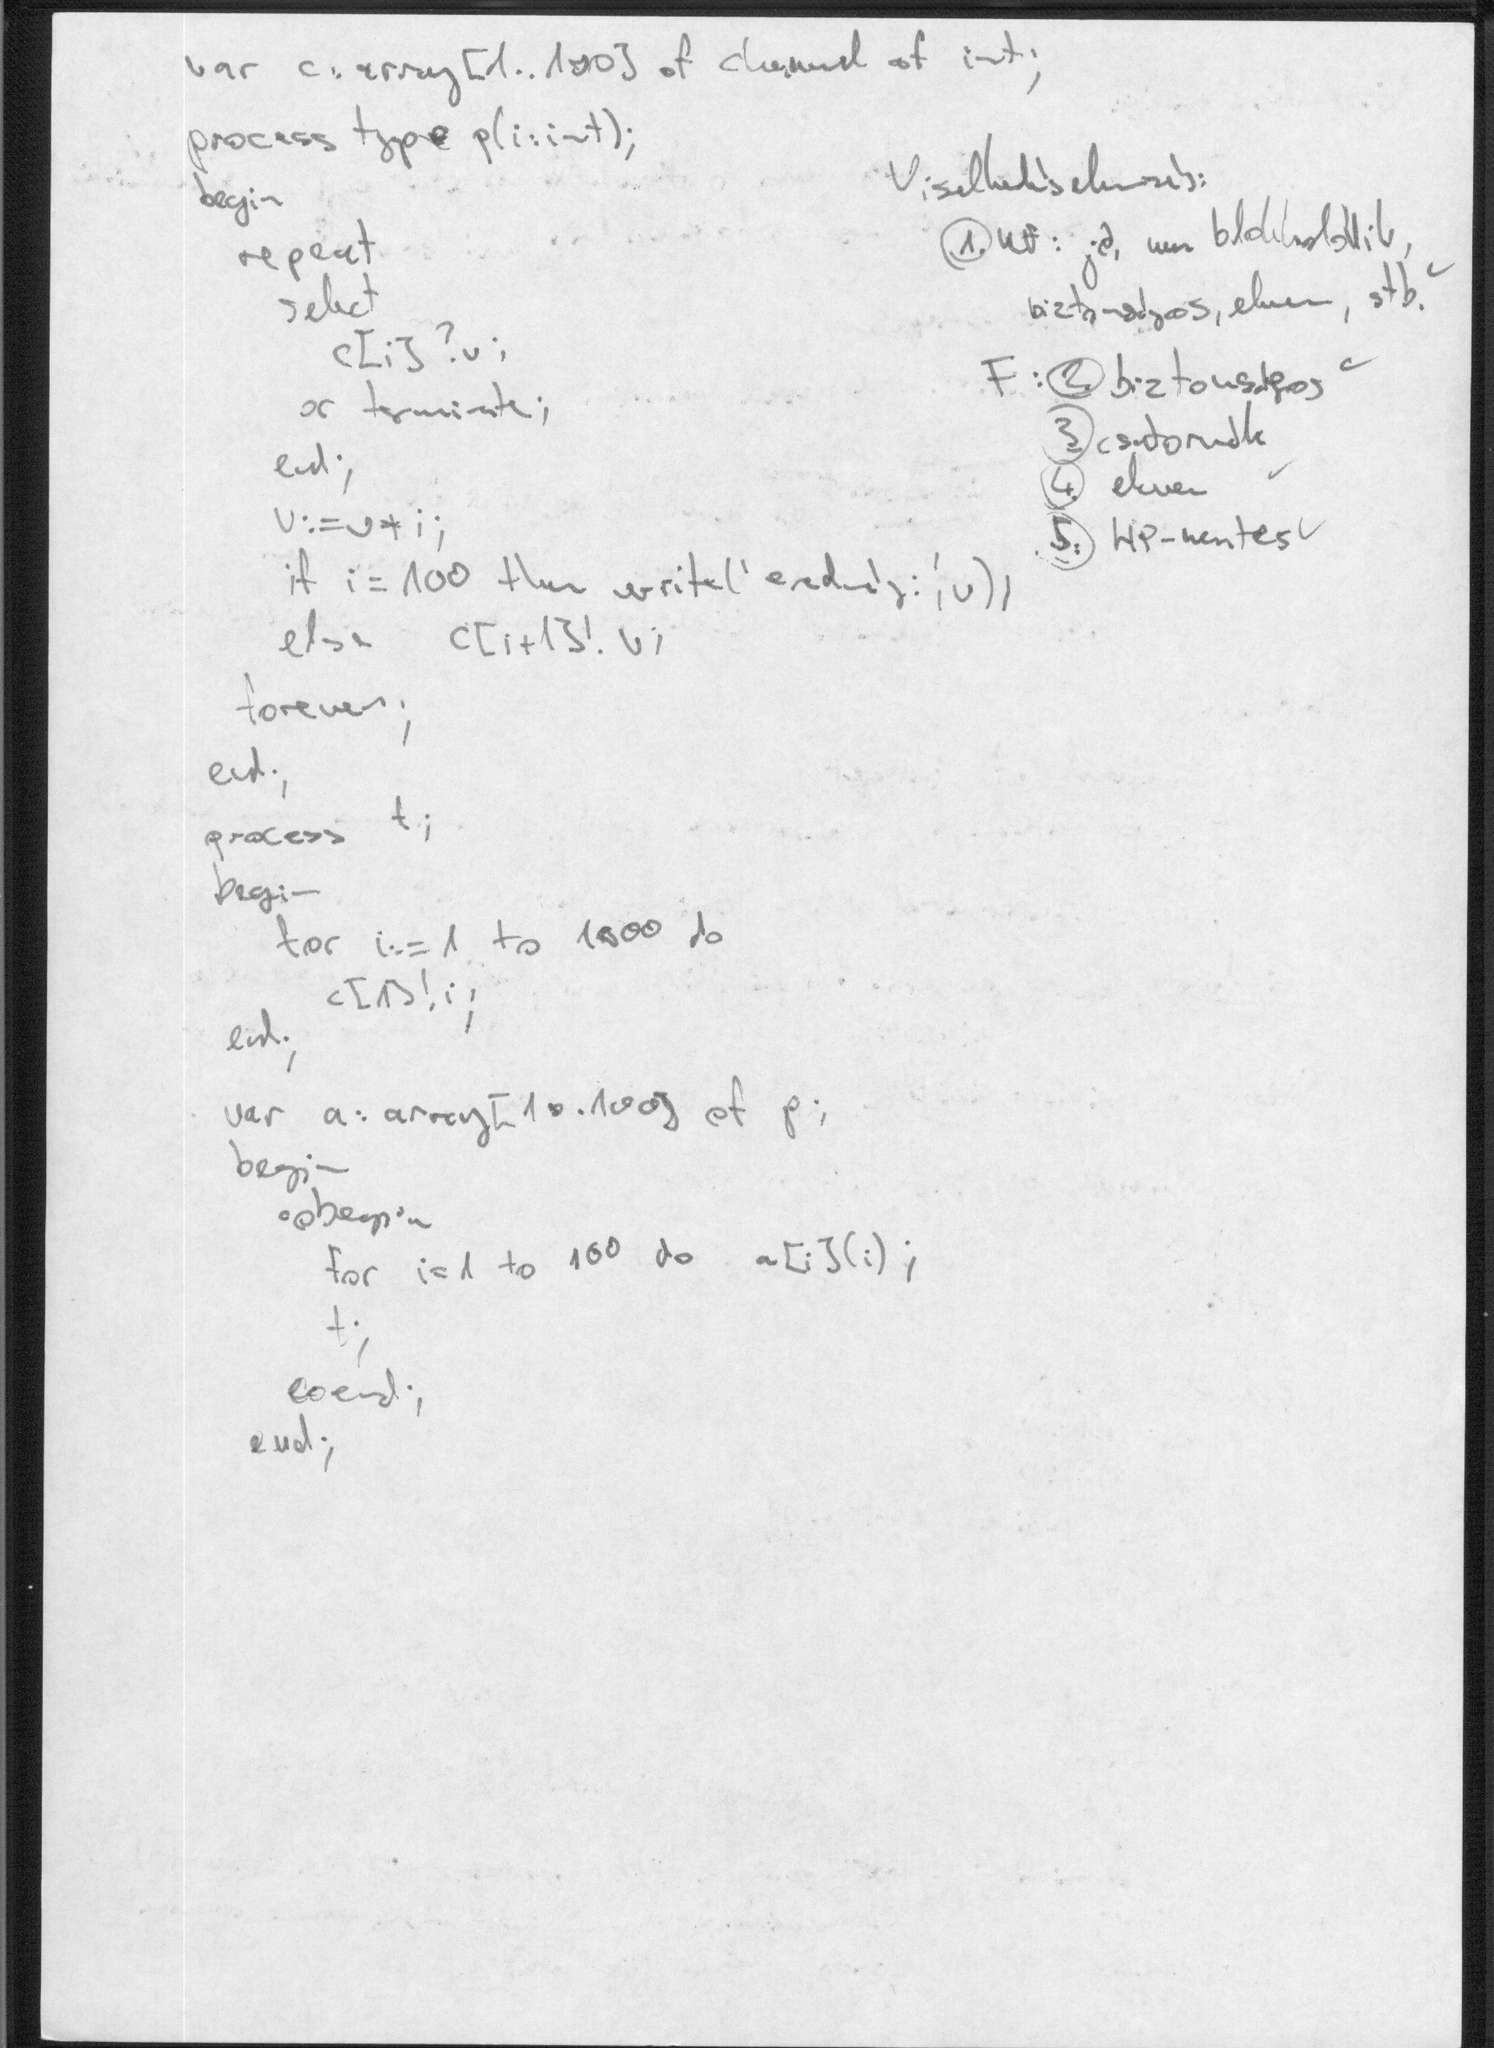 var c: array[1..100] of channel of int;
process type p(i:int);
begin
repeat
select
c[i]?v;
or terminate;
end;
v:=v*i;
if i=100 then write('eredmény:',v);
else c[i+1]!v;
forever;
end;
process t;
begin
for i:=1 to 1000 do
c[1]!i;
end;
var a: array[1..100] of p;
begin
cobegin
for i=1 to 100 do a[i](i);
t;
coend;
end;
Viselkedéselemzés:
1. KÜ: jó, nem blokkolódik,
biztonságos, eleven, stb. ✓
F: 2. biztonságos ✓
3.
4. eleven ✓
5. HP-mentes ✓